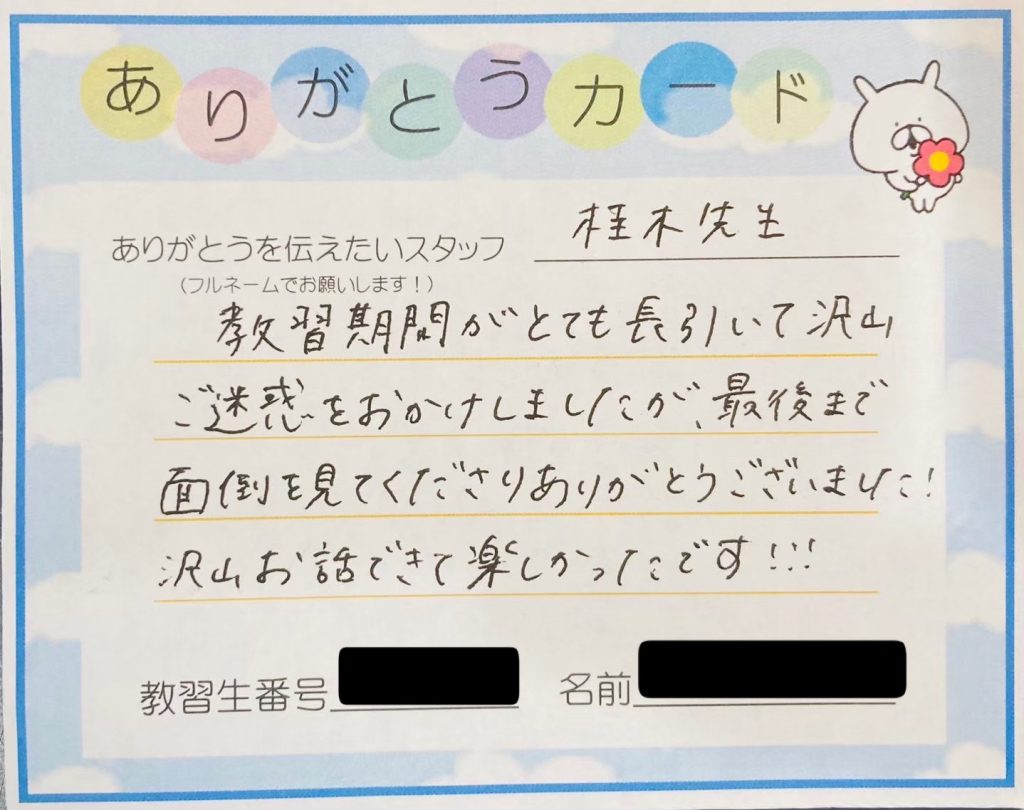 ありがとうカード
ありがとうを伝えたいスタッフ 桂木先生
(フルネームでお願いします！)
教習期間がとても長引いて沢山
ご迷惑をおかけしましたが、最後まで
面倒を見てくださりありがとうございました！
沢山お話できて楽しかったです！！！
教習生番号 名前